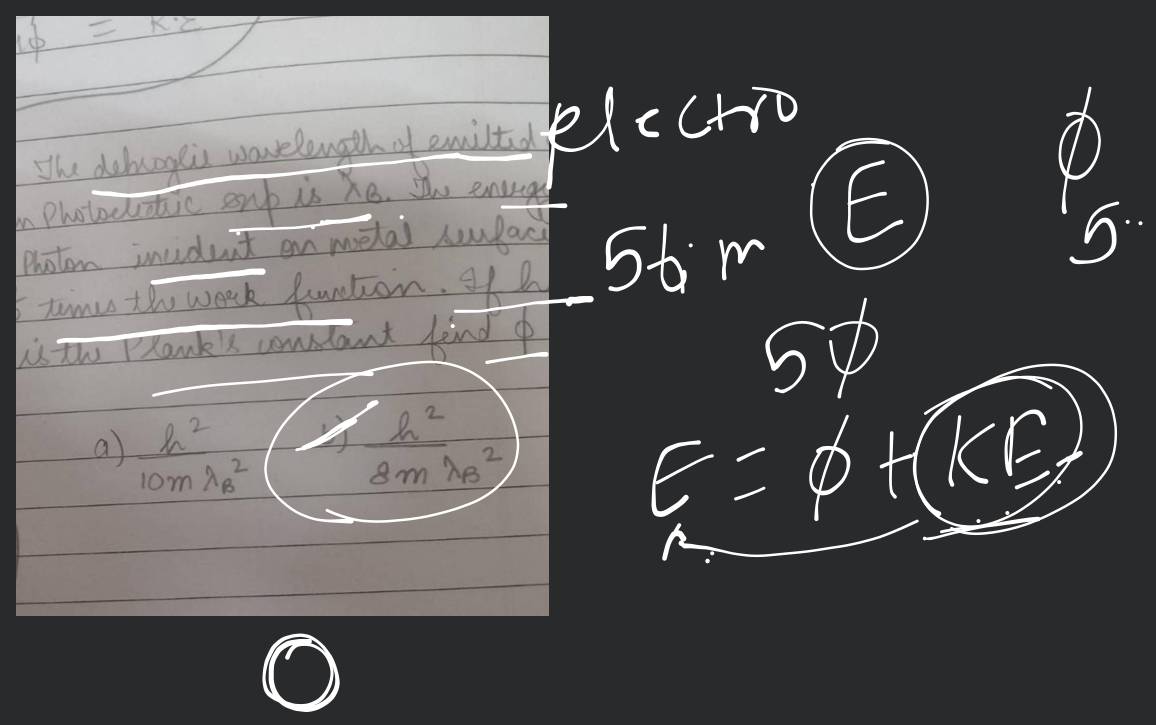 ϕ = K.E
The debroglie wavelength of emitted electro
n Photoelectric exp is λB. The energy
Photon incident on metal surface
5 times the work function. If h
is the Plank's constant find ϕ
a) h²/10m λB² b) h²/8m λB²
E ϕ
5
5ϕ
E = ϕ + KE